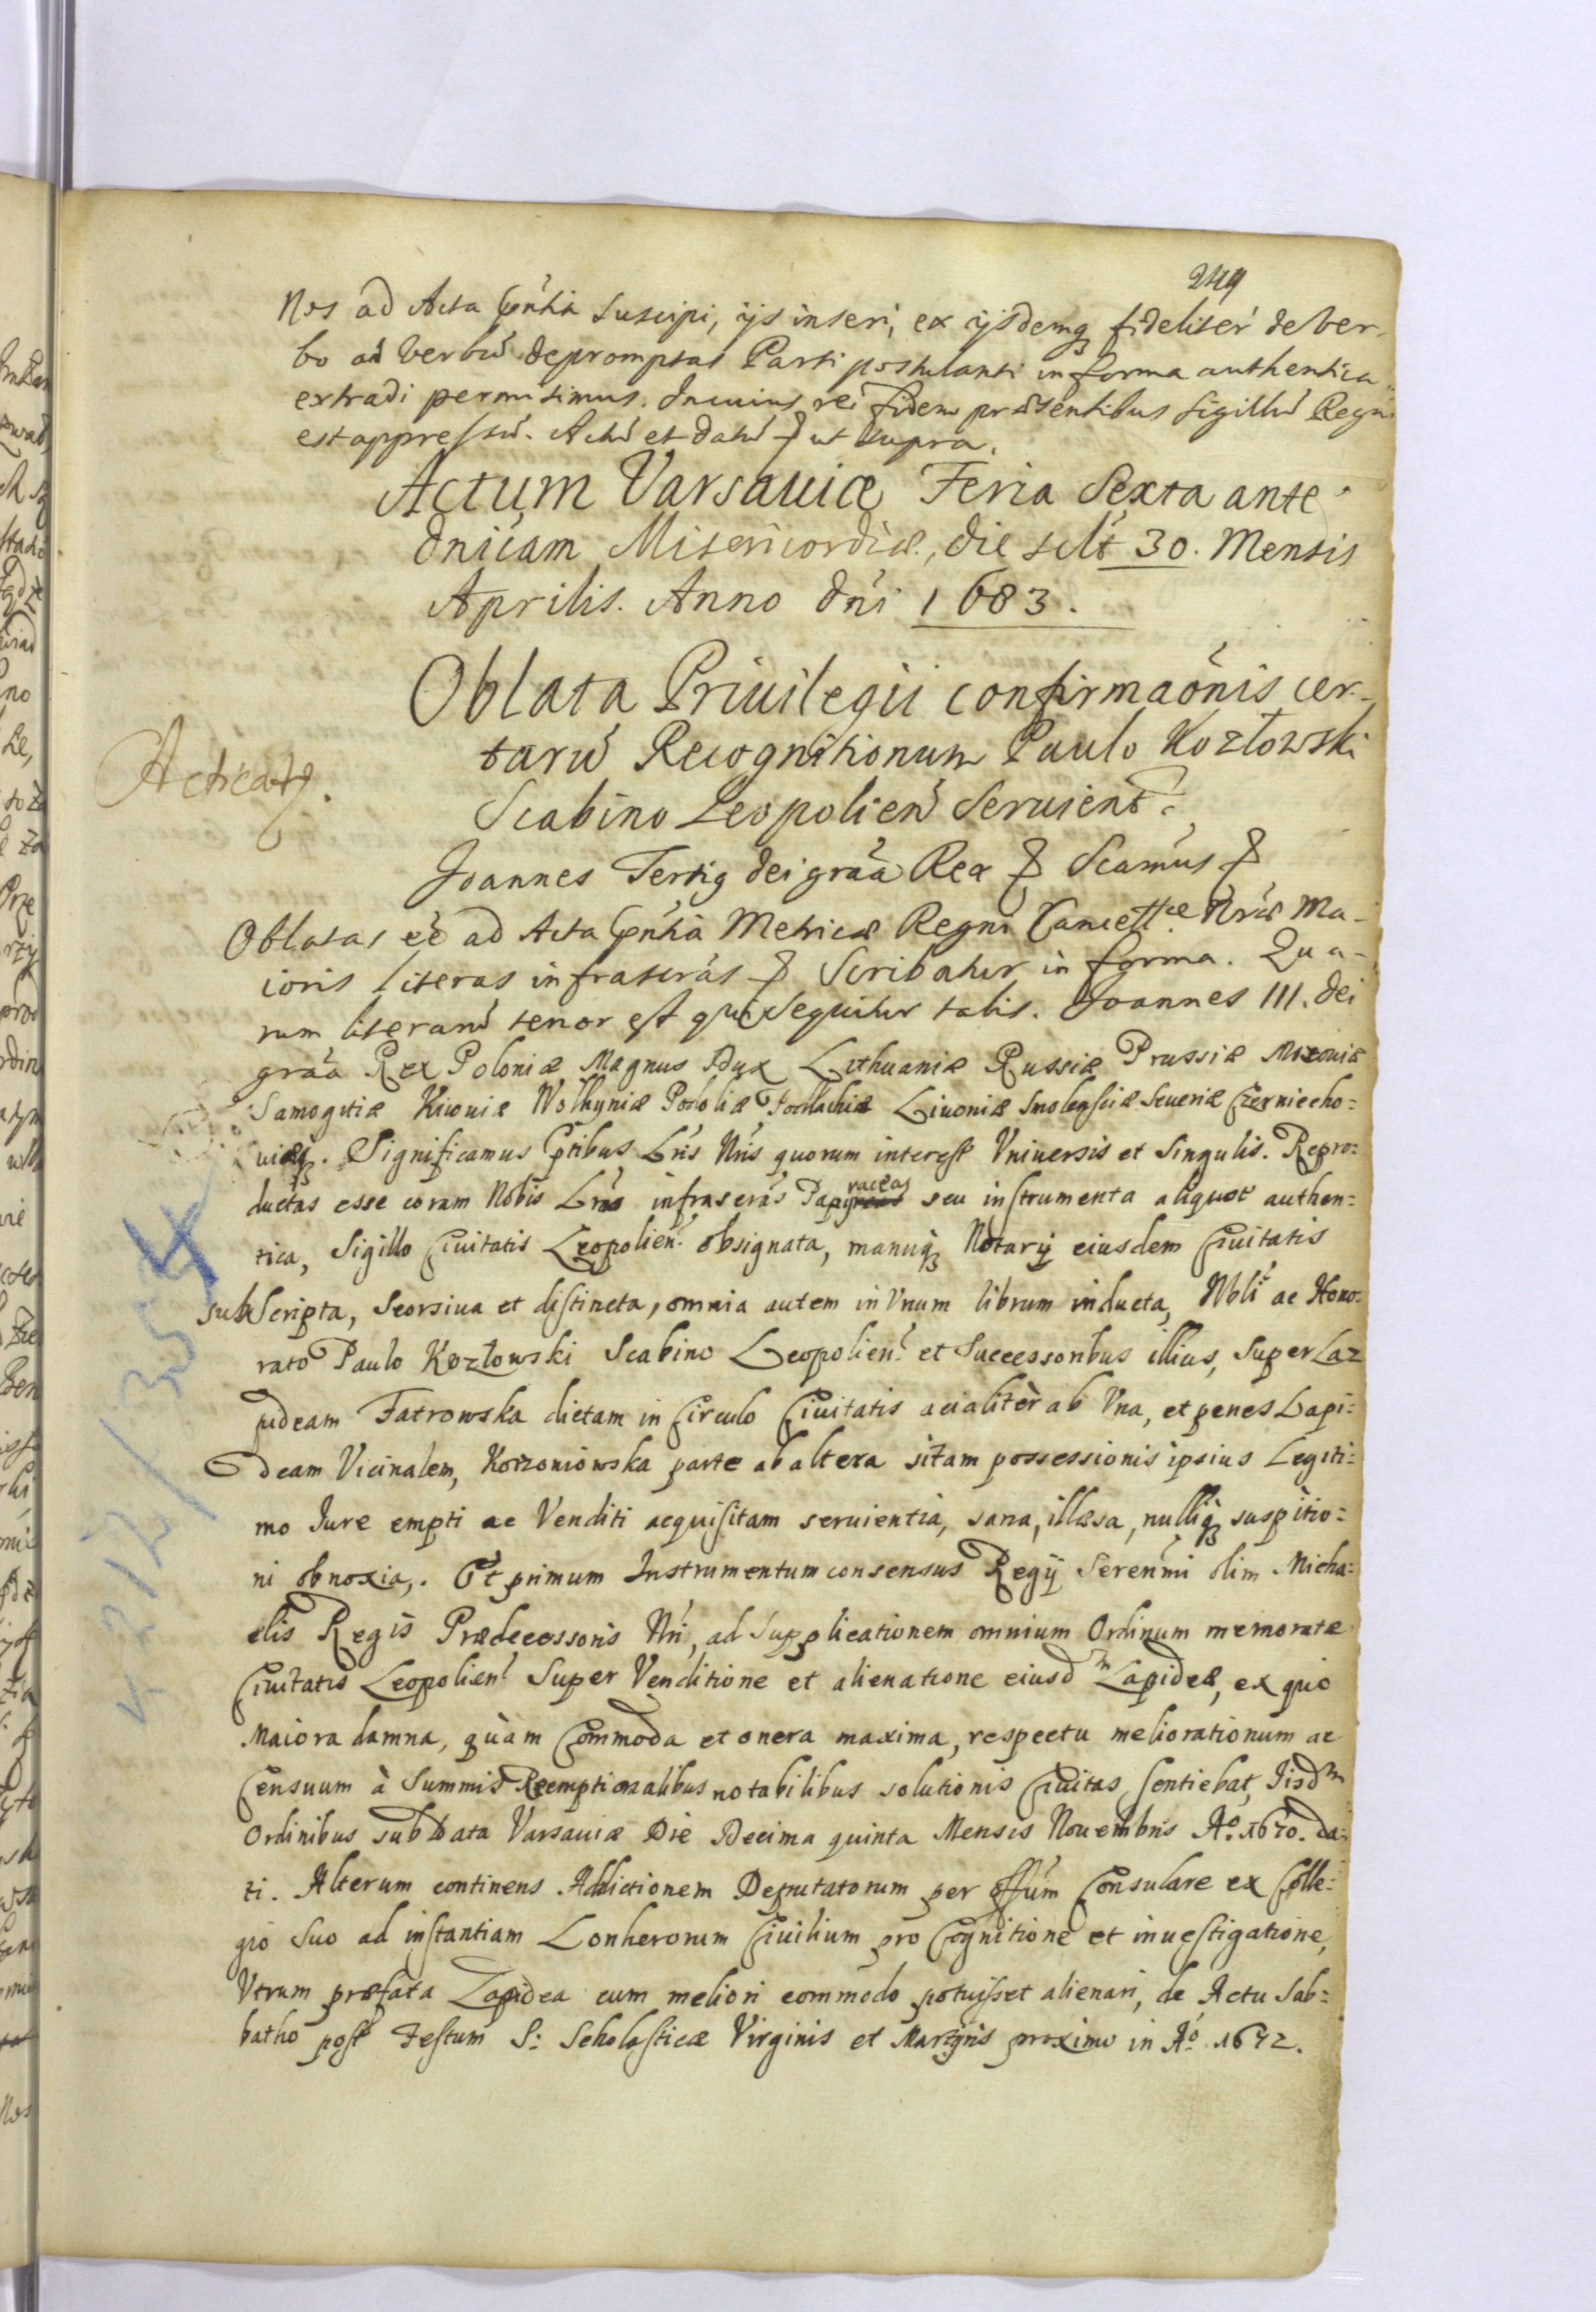 249
Nos ad Acta Pñtia Suscipi, ijs inseri, ex ijsdemq fideliter de ver-
bo ad verbũ depromptas Parti postulanti in forma authentica
extradi permisimus. In cuius rei fidem præsentibus Sigillũ Regni
est appressũ. Actũ et datũ ut supra.
Actum Varsauiæ Feria Sexta ante
dnicam Misericordiæ, die sclt 30. Mensis
Aprilis. Anno dni 1683.
Oblata Priuilegii confirmaõnis cer-
tarũ Recognitionum Paulo Kozłowski
Scabino Leopolien Seruient.
Acticat9.
Joannes Tertig dei grãa Rex Scamus
Oblatas eẽ ad Acta Pñtia Metricæ Regni Cancellæ Nræ Ma-
ioris literas infrascrás Scribatur in forma. Qua-
rum literarũ tenor est qui Sequitur talis. Joannes III. dei
grãa Rex Poloniæ Magnus Dux Lithuaniæ Russiæ Prussiæ Mazouiæ
Samogitiæ Kiouiæ Wolhyniæ Podoliæ Podlachiæ Liuoniæ Smolensciæ Seueriæ Czerniecho=
uiæq. Significamus Ptibus Lris Nris quorum interest Vniuersis et Singulis. Repro=
ductas esse coram Nobis Lras infrascras Papyraceas seu instrumenta aliquot authen=
tica, Sigillo Ciuitatis Leopolien obsignata, manuq Notarij eiusdem Ciuitatis
subScripta, Seorsiua et distincta, omnia autem in Vnum librum inducta, Nbli ac Hono=
rato Paulo Kozłowski Scabino Leopolien et Successoribus illius, Super Laz
pideam Fatrowska dictam in Circulo Ciuitatis acialitèr ab Vna, et penes Lapi=
deam Vicinalem, Korzoniowska parte ab altera sitam possessionis ipsius Legiti=
mo Jure empti ac Venditi acquisitam seruientia, sana, illæsa, nulliq suspitio=
ni obnoxia,. Et primum Instrumentum consensus Regij Serenmi olim Micha=
elis Regis Prædecessoris Nri, ad Supplicationem omnium Ordinum memoratæ
Ciuitatis Leopolien Super Venditione et alienatione eiusdm Lapideæ, ex quo
Maiora damna, quàm Commoda et onera maxima, respectu meliorationum ac
Censuum à Summis Reemptionalibus notabilibus solutionis Ciuitas sentiebat, Iisdm
Ordinibus sub Data Varsauiæ Die Decima quinta Mensis Nouembris Ao. 1670. da=
ti. Alterum continens Addictionem Deputatorum per offum Consulare ex Colle=
gio Suo ad instantiam Lonherorum Ciuilium pro Cognitione et inuestigatione,
Vtrum præfata Lapidea cum meliori commodo potuisset alienari, de Actu Sab=
batho post Festum S: Scholasticæ Virginis et Martyris proximo in Ao 1672.